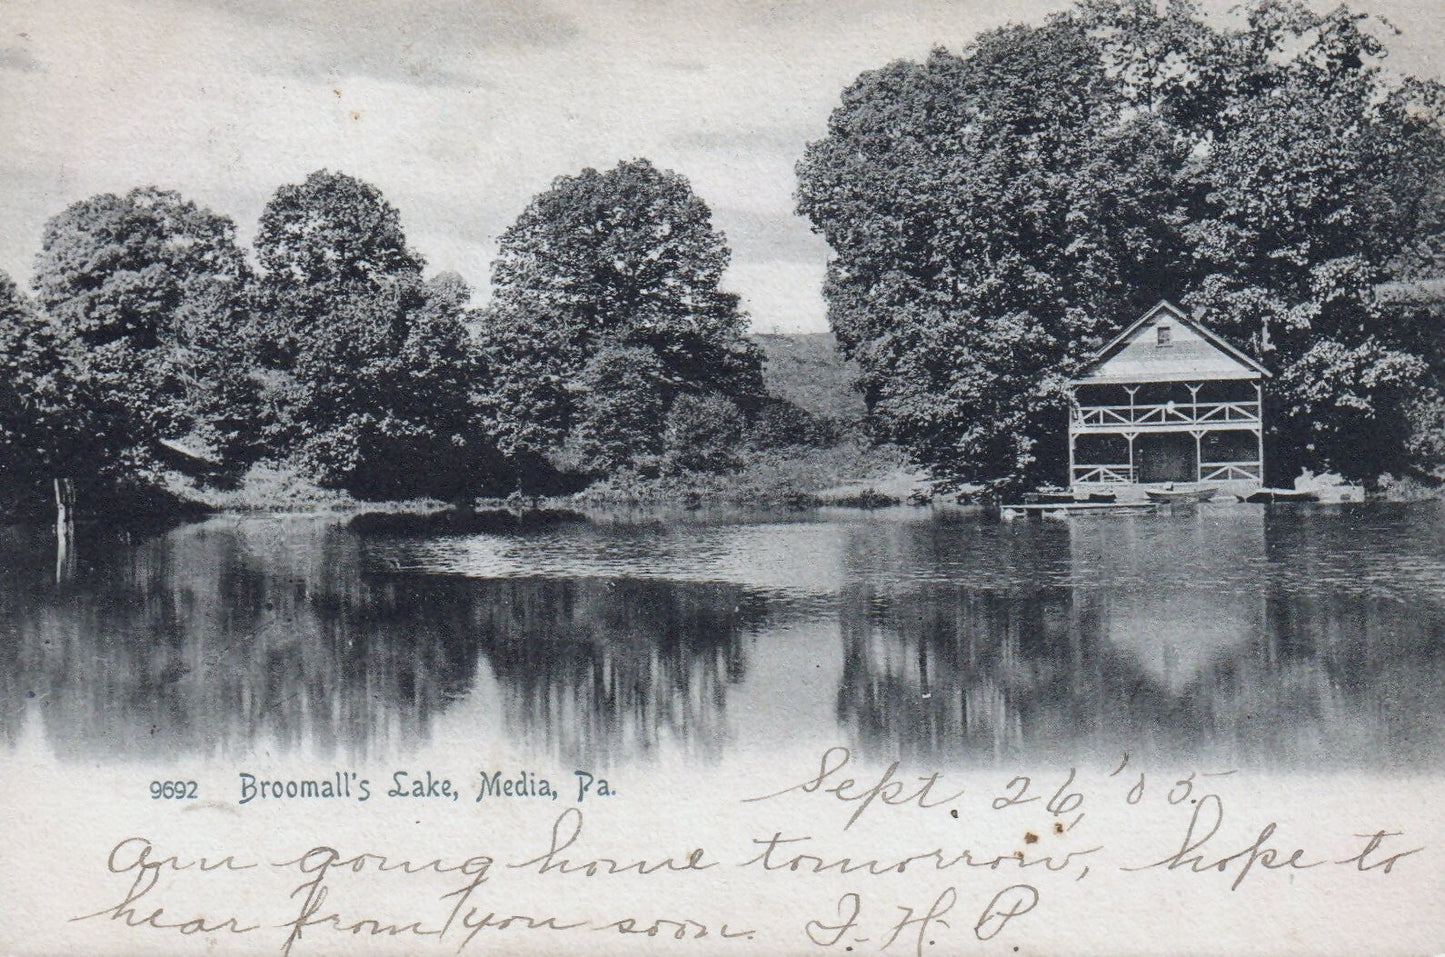 9692 Broomall's Lake, Media, Pa.
Sept. 26, '05.
Am going home tomorrow, hope to
hear from you soon. F. H. P.